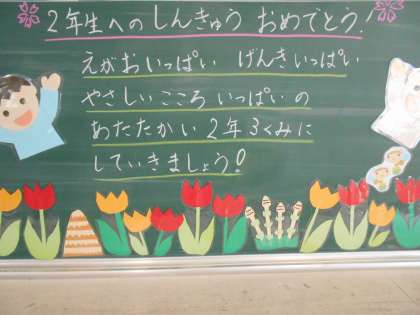 2年生へのしんきゅう おめでとう!
えがおいっぱい げんきいっぱい
やさしいこころいっぱいの
あたたかい2年3くみに
していきましょう!